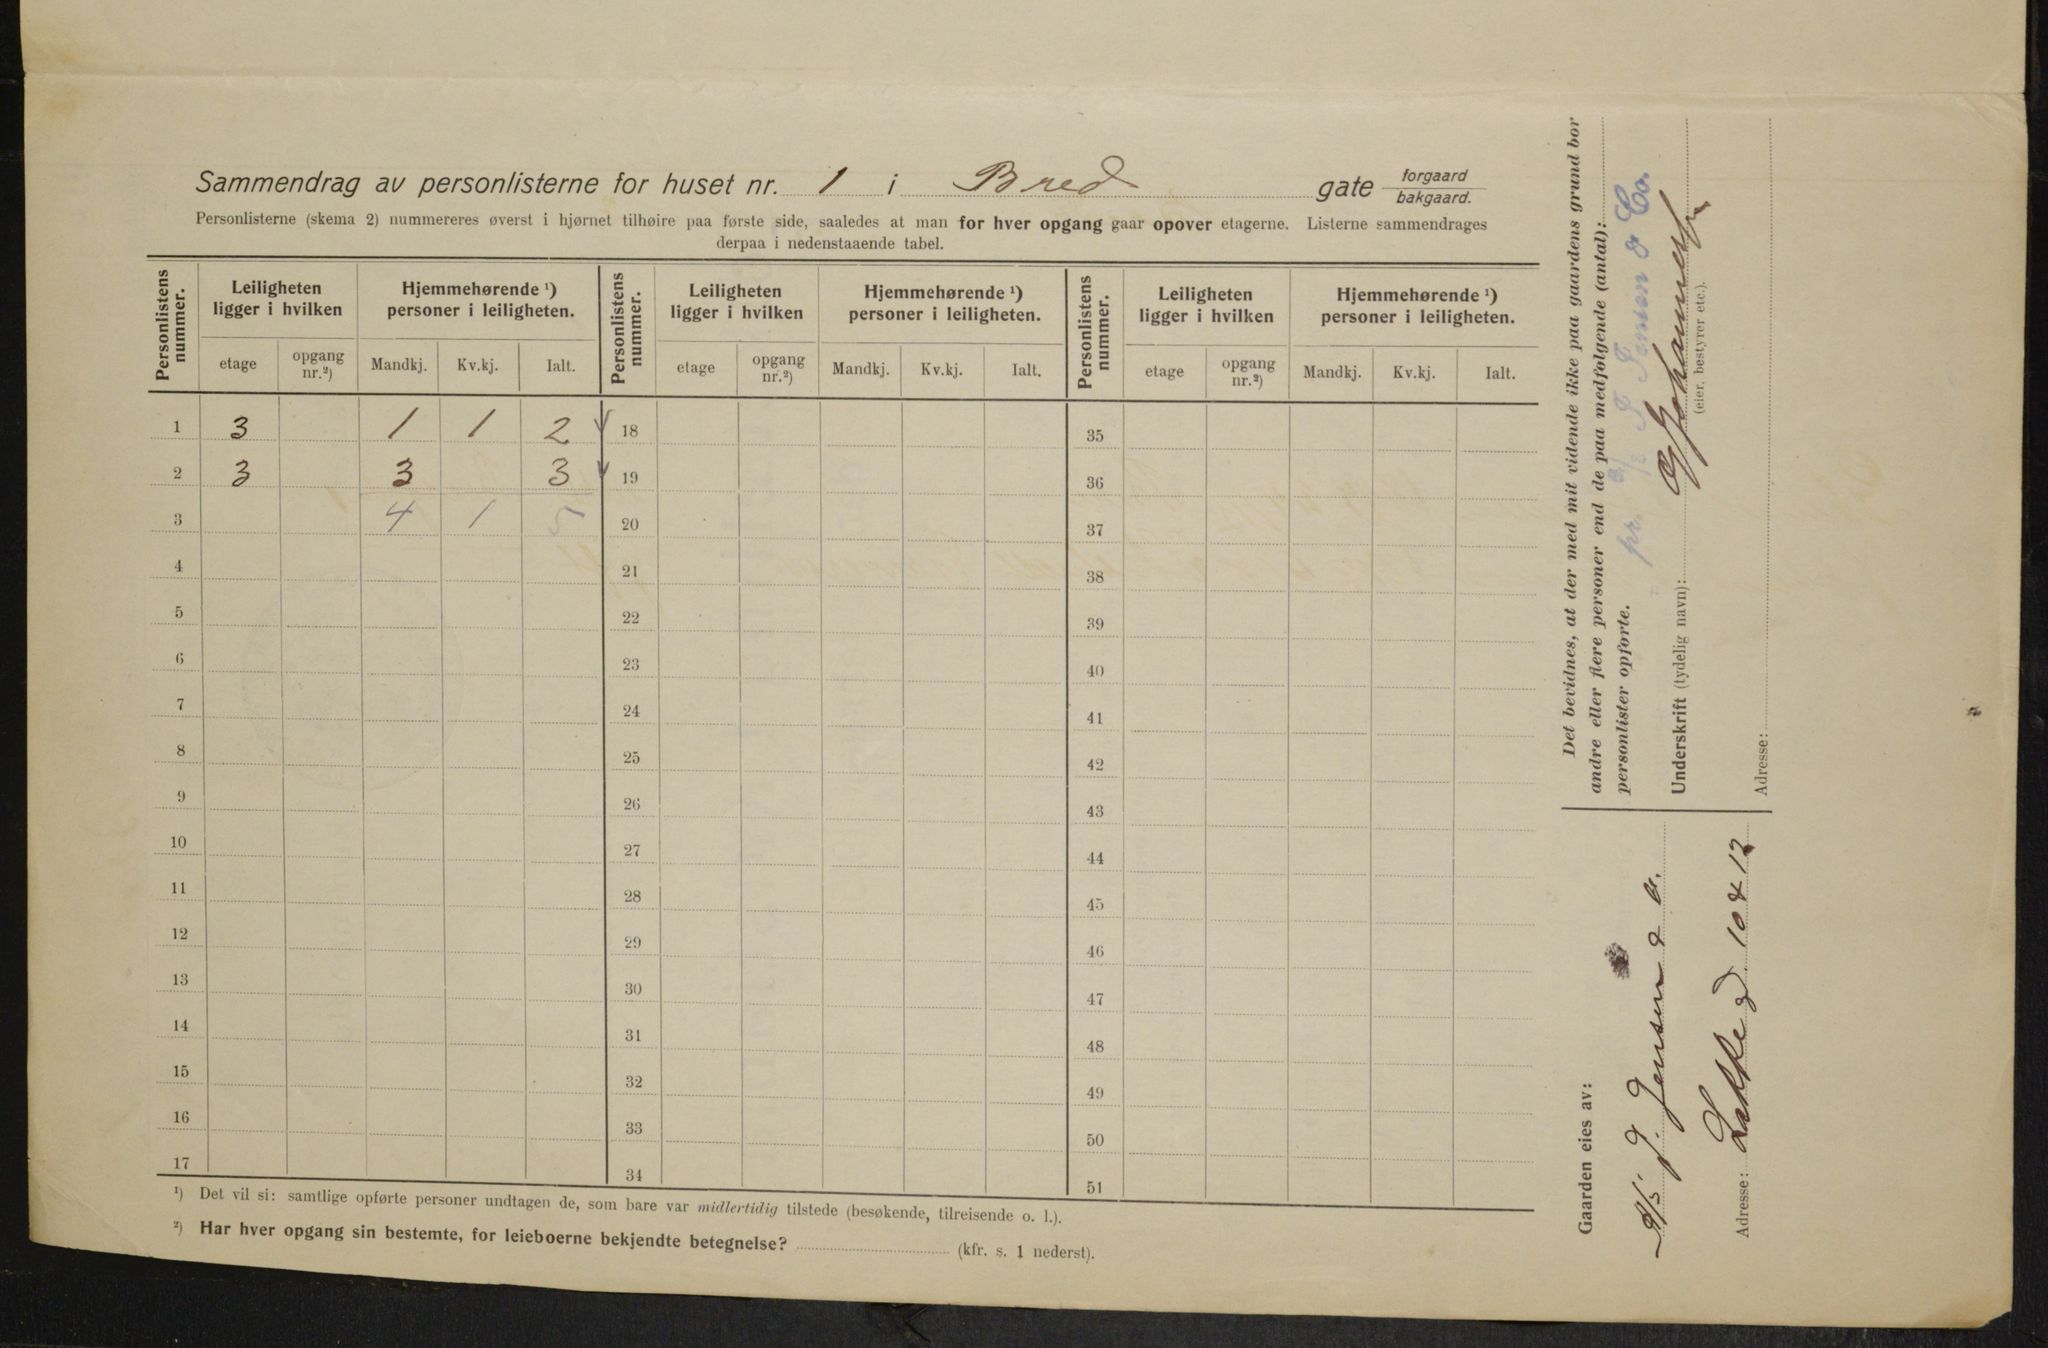 Sammendrag av personlisterne for huset nr. 1 i Bred gate forgaard bakgaard.
Personlisterne (skema 2) nummereres øverst i hjørnet tilhøire paa første side, saaledes at man for hver opgang gaar opover etagerne. Listerne sammendrages
derpaa i nedenstaaende tabel.
Personlistens nummer. Leiligheten ligger i hvilken Hjemmehørende ¹) personer i leiligheten. Personlistens nummer. Leiligheten ligger i hvilken Hjemmehørende ¹) personer i leiligheten. Personlistens nummer. Leiligheten ligger i hvilken Hjemmehørende ¹) personer i leiligheten.
etage opgang nr.²) Mandkj. Kv.kj. Ialt. etage opgang nr.²) Mandkj. Kv.kj. Ialt. etage opgang nr.²) Mandkj. Kv.kj. Ialt.
1 3 1 1 2 18 35
2 3 3 3 19 36
3 4 1 5 20 37
4 21 38
5 22 39
6 23 40
7 24 41
8 25 42
9 26 43
10 27 44
11 28 45
12 29 46
13 30 47
14 31 48
15 32 49
16 33 50
17 34 51
¹) Det vil si: samtlige opførte personer undtagen de, som bare var midlertidig tilstede (besøkende, tilreisende o. l.).
²) Har hver opgang sin bestemte, for leieboerne bekjendte betegnelse? (kfr. s. 1 nederst).
Det bevidnes, at der med mit vidende ikke paa gaardens grund bor
andre eller flere personer end de paa medfølgende (antal):
personlister opførte.
pr. A/S J. Jensen & Co.
Underskrift (tydelig navn): Johannesen
(eier, bestyrer etc.).
Adresse:
Gaarden eies av:
A/S J. Jensen & Co.
Adresse: Lakkegd. 10 & 12